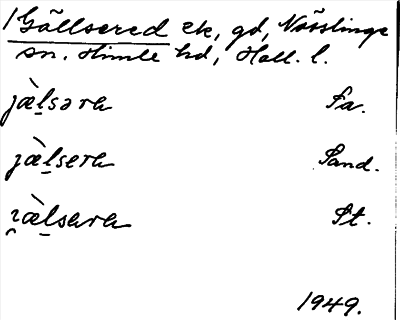 1 Gällsered ek, gd, Nösslinge
sn. Himle hd, Hall. l.
jæ̀l̠səra Fa.
jæ̀l̠sera Sand.
ɪ̯æ̀l̠sara St.
1949.